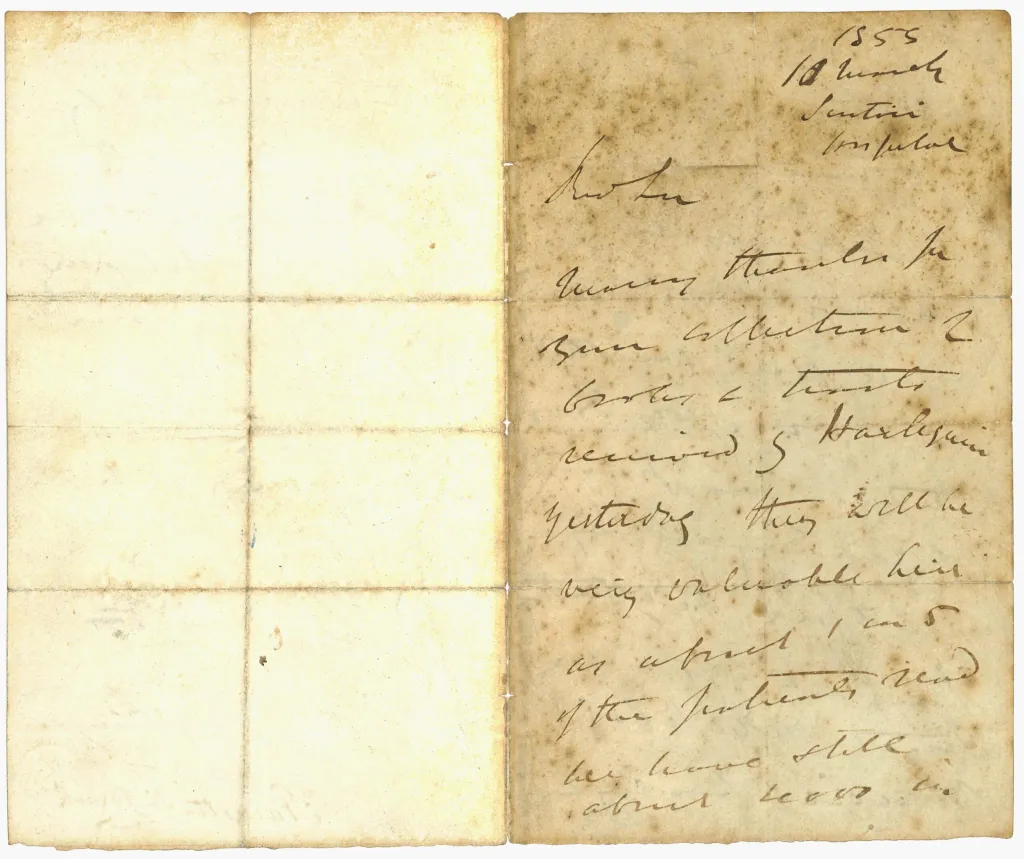 1855
18 March
Scutari
Hospital
Rev Sir
Many thanks for
your collection of
books & tracts
received by Harlequin
yesterday they will be
very valuable here
as about 1 in 5
of the patients read
we have still
about 4000 in